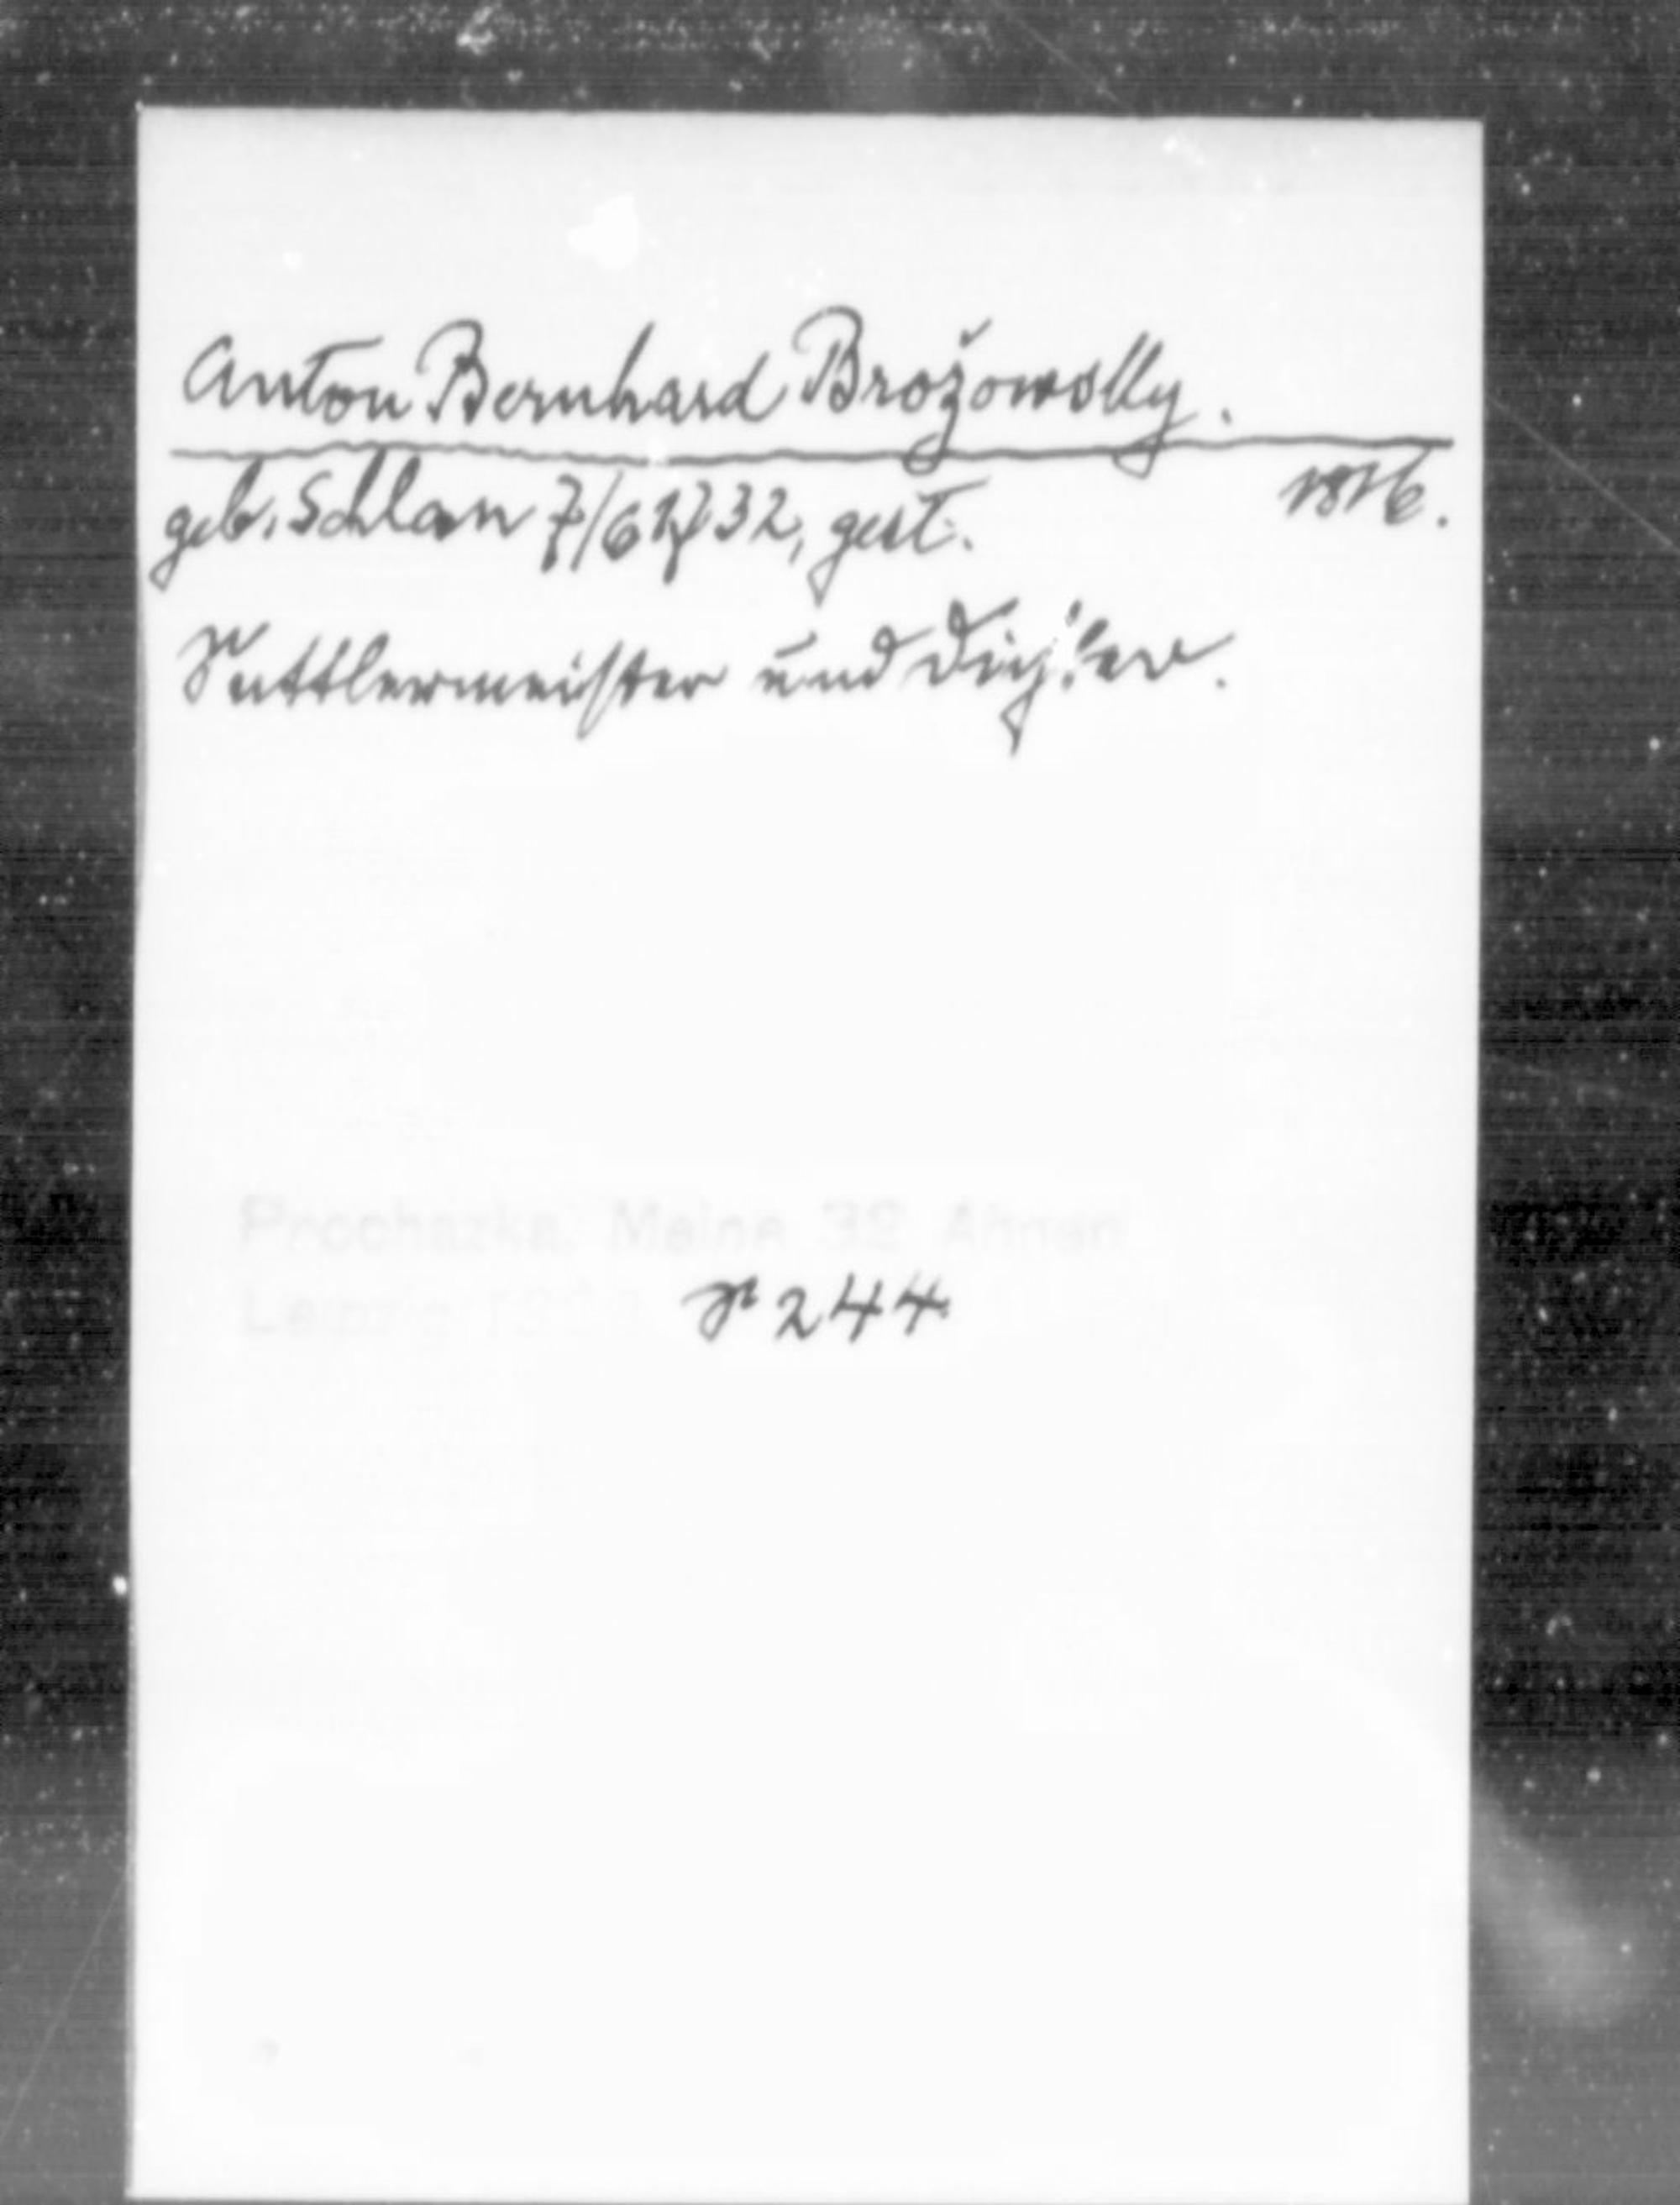 Anton Bernhard Brožowsky.
geb. Schlan 7/6 1732, gest. 1816.
Sattlermeister und Dichter.
Prochazka, Meine 32 Ahnen
Leipzig S 244